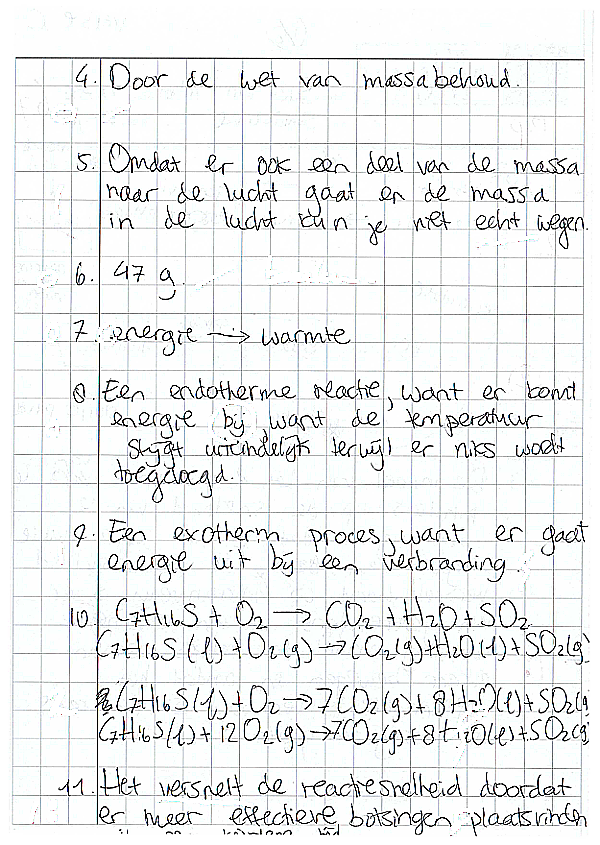 4. Door de wet van massabehoud.
5. Omdat er ook een deel van de massa
naar de lucht gaat en de massa
in de lucht kun je niet echt wegen.
6. 47 g
7. energie → warmte
8. Een endotherme reactie, want er komt
energie bij, want de temperatuur
stijgt uiteindelijk terwijl er niks wodt
toegdoegd.
9. Een exotherm proces, want er gaat
energie uit bij een verbranding.
10. C7H16S + O2 → CO2 + H2O + SO2
C7H16S (l) + O2 (g) → CO2 (g) + H2O (l) + SO2 (g)
C7H16S (l) + O2 → 7 CO2 (g) + 8 H2O (l) + SO2 (g
C7H16S (l) + 12 O2 (g) → 7CO2 (g) + 8 H2O (l) + SO2 (g
11. Het versnelt de reactiesnelheid doordat
er meer effectieve botsingen plaatsvinden